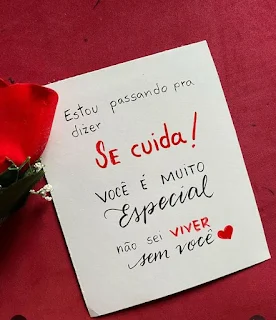 Estou passando pra
dizer
SE cuida!
VOCÊ É MUITO
Especial
não sei VIVER
sem você